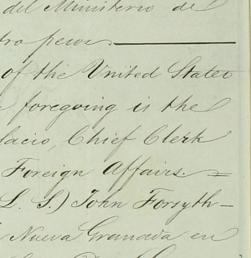 del Ministerio de
tro pesos.
of the United States
foregoing is the
lacio, Chief Clerk
Foreign Affairs. =
L. S.) John Forsyth-
Nueva Granada en